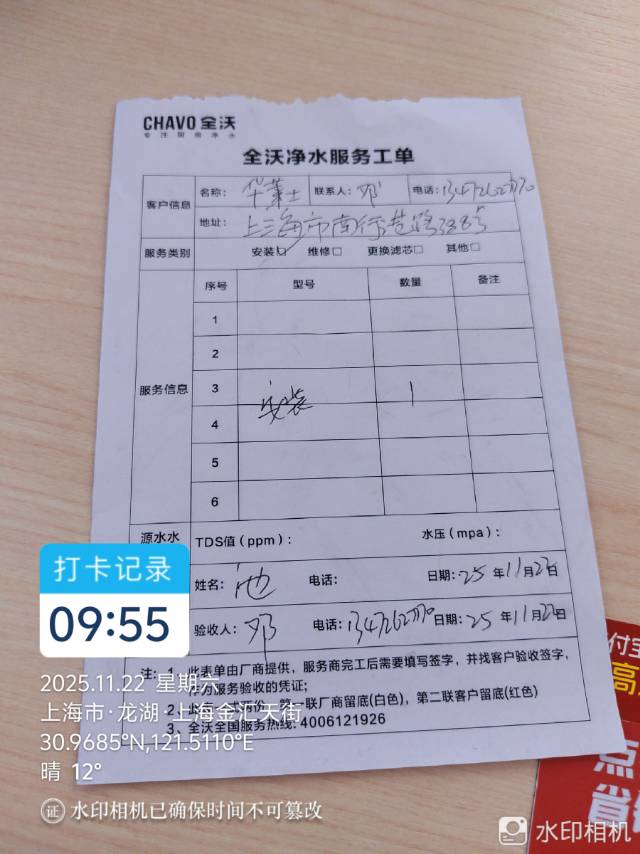 CHAVO 全沃
专注厨房净水
全沃净水服务工单
客户信息 名称：华莱士 联系人：邓 电话：
地址：上海市南行港路388号
服务类别 安装☑ 维修□ 更换滤芯□ 其他□
服务信息 序号 型号 数量 备注
1
2
3
安装 1
4
5
6
源水水 TDS值（ppm）： 水压（mpa）：
姓名：池 电话： 日期：25 年11月22日
验收人：邓 电话： 日期：25 年11月22日
注：1、此表单由厂商提供，服务商完工后需要填写签字，并找客户验收签字，
服务验收的凭证；
2、此 第一联厂商留底(白色)，第二联客户留底(红色)
3、全沃全国服务热线：4006121926
打卡记录
09:55
2025.11.22 星期六
上海市·龙湖·上海金汇天街
30.9685°N,121.5110°E
晴 12°
证 水印相机已确保时间不可篡改
水印相机
付宝
高
点
省